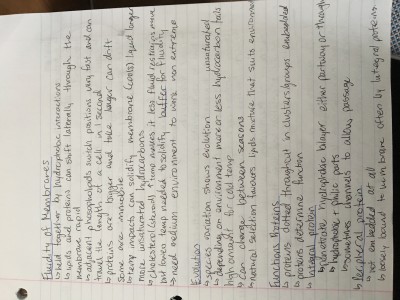 Fluidity of Membranes
held together by hydrophobic interactions
↳ lipids and proteins can shift laterally through the
membrane rapid
↳ adjacent phospholipids switch positions very fast and can
travel the length of a cell in 1 second
↳ proteins are larger and take longer can drift
some are immobile
↳ temp impacts can solidify membrane (cools) liquid longer
more unsaturated hydrocarbons
↳ cholesterol (steroid) ↑ temp makes it less fluid, restrains move
but lowers temp needed to solidify, buffer for fluidity
↳ need medium environment to work non extreme
Evolution
↳ species variation shows evolution
↳ depending on environment more or less unsaturated hydrocarbon tails
high amount for cold temp
↳ can change between seasons
↳ natural selection favours lipids mixture that suits environment
Functions Proteins
↳ proteins dotted throughout in clusters/groups embedded
↳ proteins determine function
↳ integral protein
↳ penetrate hydrophobic bilayer either partway or through
↳ hydrophilic parts
↳ sometimes channels to allow passage
↳ peripheral protein
↳ not embedded at all
↳ loosely bound to membrane often by integral proteins